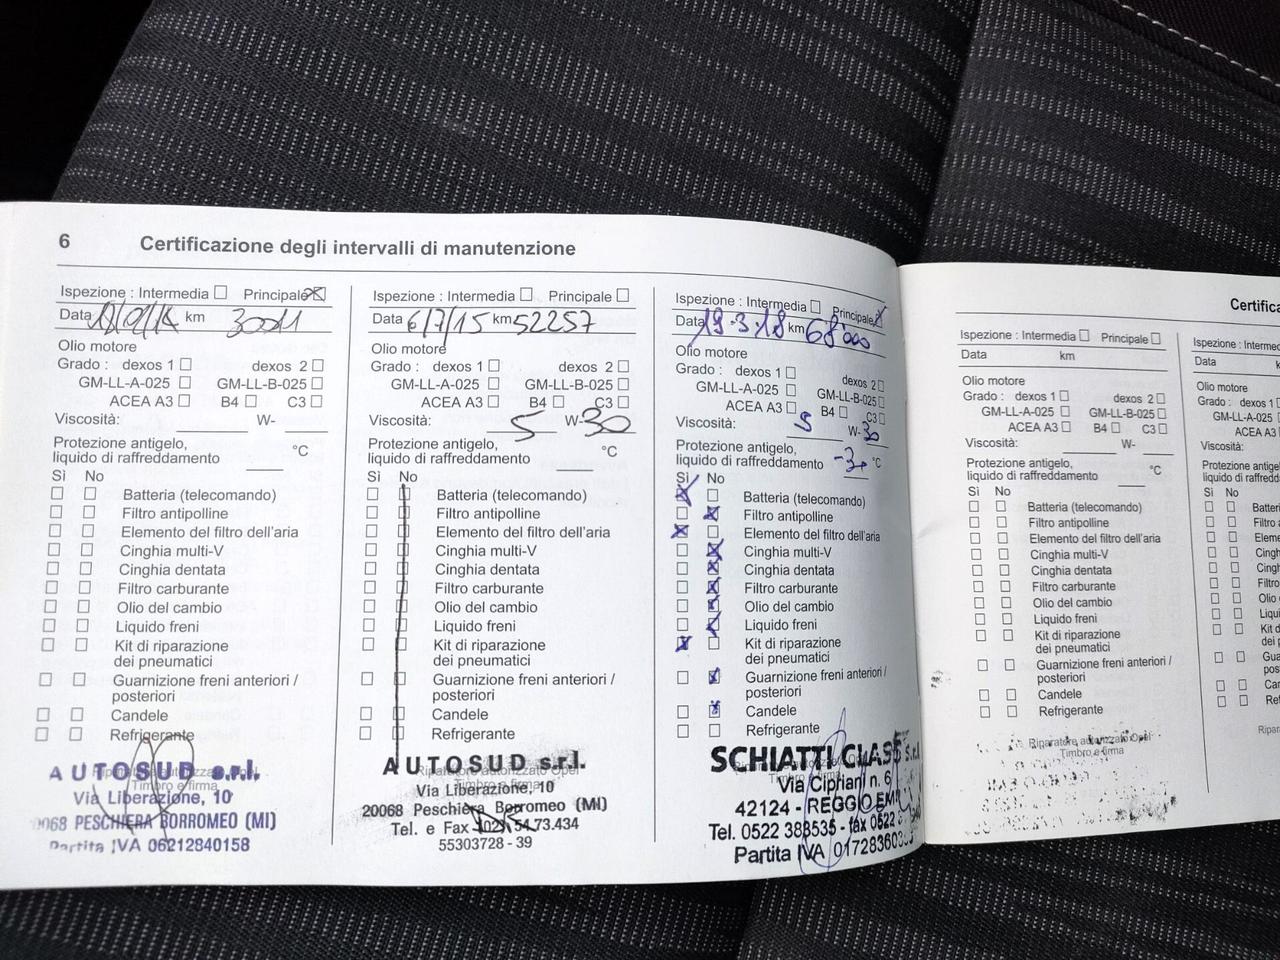 6 Certificazione degli intervalli di manutenzione
Ispezione : Intermedia Principale
Data km 30011
Olio motore
Grado : dexos 1 dexos 2
GM-LL-A-025 GM-LL-B-025
ACEA A3 B4 C3
Viscosità: W-
Protezione antigelo,
liquido di raffreddamento °C
Sì No
Batteria (telecomando)
Filtro antipolline
Elemento del filtro dell'aria
Cinghia multi-V
Cinghia dentata
Filtro carburante
Olio del cambio
Liquido freni
Kit di riparazione
dei pneumatici
Guarnizione freni anteriori /
posteriori
Candele
Refrigerante
Riparatore autorizzato Opel
Timbro e firma
AUTOSUD s.r.l.
Via Liberazione, 10
20068 PESCHIERA BORROMEO (MI)
Partita IVA 06212840158
Ispezione : Intermedia Principale
Data 6/7/15 km 52257
Olio motore
Grado : dexos 1 dexos 2
GM-LL-A-025 GM-LL-B-025
ACEA A3 B4 C3
Viscosità: 5 W-30
Protezione antigelo,
liquido di raffreddamento °C
Sì No
Batteria (telecomando)
Filtro antipolline
Elemento del filtro dell'aria
Cinghia multi-V
Cinghia dentata
Filtro carburante
Olio del cambio
Liquido freni
Kit di riparazione
dei pneumatici
Guarnizione freni anteriori /
posteriori
Candele
Refrigerante
Riparatore autorizzato Opel
Timbro e firma
AUTOSUD s.r.l.
Via Liberazione, 10
20068 Peschiera Borromeo (MI)
Tel. e Fax 02 54.73.434
55303728 - 39
Ispezione : Intermedia Principale
Data 19-3-18 km 68'000
Olio motore
Grado : dexos 1 dexos 2
GM-LL-A-025 GM-LL-B-025
ACEA A3 B4 C3
Viscosità: 5 W-30
Protezione antigelo,
liquido di raffreddamento -30 °C
Sì No
Batteria (telecomando)
Filtro antipolline
Elemento del filtro dell'aria
Cinghia multi-V
Cinghia dentata
Filtro carburante
Olio del cambio
Liquido freni
Kit di riparazione
dei pneumatici
Guarnizione freni anteriori /
posteriori
Candele
Refrigerante
SCHIATTI CLASS s.r.l.
Via Cipriani n. 6
42124 - REGGIO EMI
Tel. 0522 388535 - fax 0522
Partita IVA
Certific
Ispezione : Intermedia Principale
Data km
Olio motore
Grado : dexos 1 dexos 2
GM-LL-A-025 GM-LL-B-025
ACEA A3 B4 C3
Viscosità: W-
Protezione antigelo,
liquido di raffreddamento °C
Sì No
Batteria (telecomando)
Filtro antipolline
Elemento del filtro dell'aria
Cinghia multi-V
Cinghia dentata
Filtro carburante
Olio del cambio
Liquido freni
Kit di riparazione
dei pneumatici
Guarnizione freni anteriori /
posteriori
Candele
Refrigerante
Riparatore autorizzato Opel
Timbro e firma
Ispezione : Intermedia
Data k
Olio motore
Grado : dexos 1
GM-LL-A-025
ACEA A3
Viscosità:
Protezione antigelo,
liquido di raffredda
Sì No
Batter
Filtro a
Eleme
Cingh
Cingh
Filtro
Olio
Liqui
Kit d
dei p
Gua
pos
Car
Ref